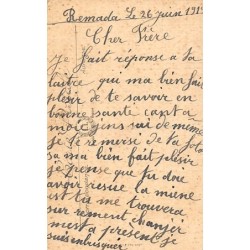 Remada Le 26 juin 191
Cher Frère
je fait réponse a ta
laitre qui ma bien fait
plesir de te savoir en
bonne santé cant a
moi gens sui de mime
je te remersi de la foto
sa ma bien fait plesir
je prense que tu doi
avoir resue la miene
est tu me trouvera
sur rement changer
mest a present je